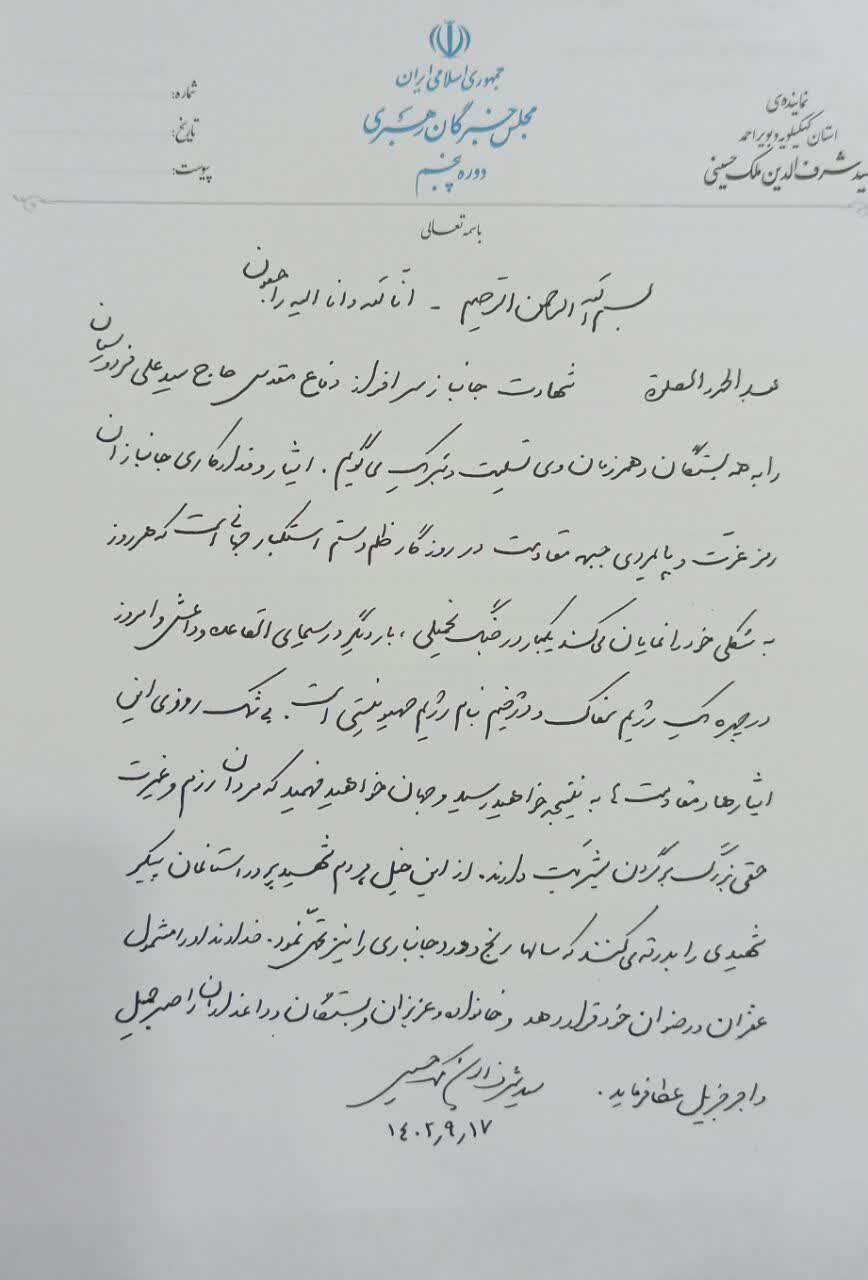 جمهوری اسلامی ایران
مجلس خبرگان رهبری
دوره پنجم
نماینده‌ی
استان کهگیلویه و بویراحمد
سید شرف الدین ملک حسینی
شماره:
تاریخ:
پیوست:
باسمه تعالی
بسم الله الرحمن الرحیم - انّا لله و انا الیه راجعون
بعد الحمد و الصلوة شهادت جانباز سرافراز دفاع مقدس حاج سید علی فردوسیان
را به همه بستگان و همرزمان وی تسلیت و تبریک می گویم. ایثار و فداکاری جانبازان
رمز عزّت و پایمردی جبهه مقاومت در روزگار ظلم و ستم استکبار جهانی است که هر روز
به شکلی خود را نمایان می کند یکبار در جنگ تحمیلی، بار دیگر در سیمای القاعده و داعش و امروز
در چهره یک رژیم سفاک و دژخیم بنام رژیم صهیونیستی است. بی شک روزی این
ایثارها و مقاومت ها به نتیجه خواهد رسید و جهان خواهد فهمید که مردان رزم و غیرت
حقی بزرگ بر گردن بشریّت دارند. از این خیل مردم شهیدپرور استانمان پیکر
شهیدی را بدرقه می کنند که سالها رنج و درد جانبازی را نیز تحمّل نمود. خداوند او را مشمول
غفران و رضوان خود قرار دهد و خانواده و عزیزان و بستگان و داغداران را صبر جمیل
و اجر جزیل عطا فرماید.
سید شرف الدین ملک حسینی
۱۴۰۲٫۹٫۱۷